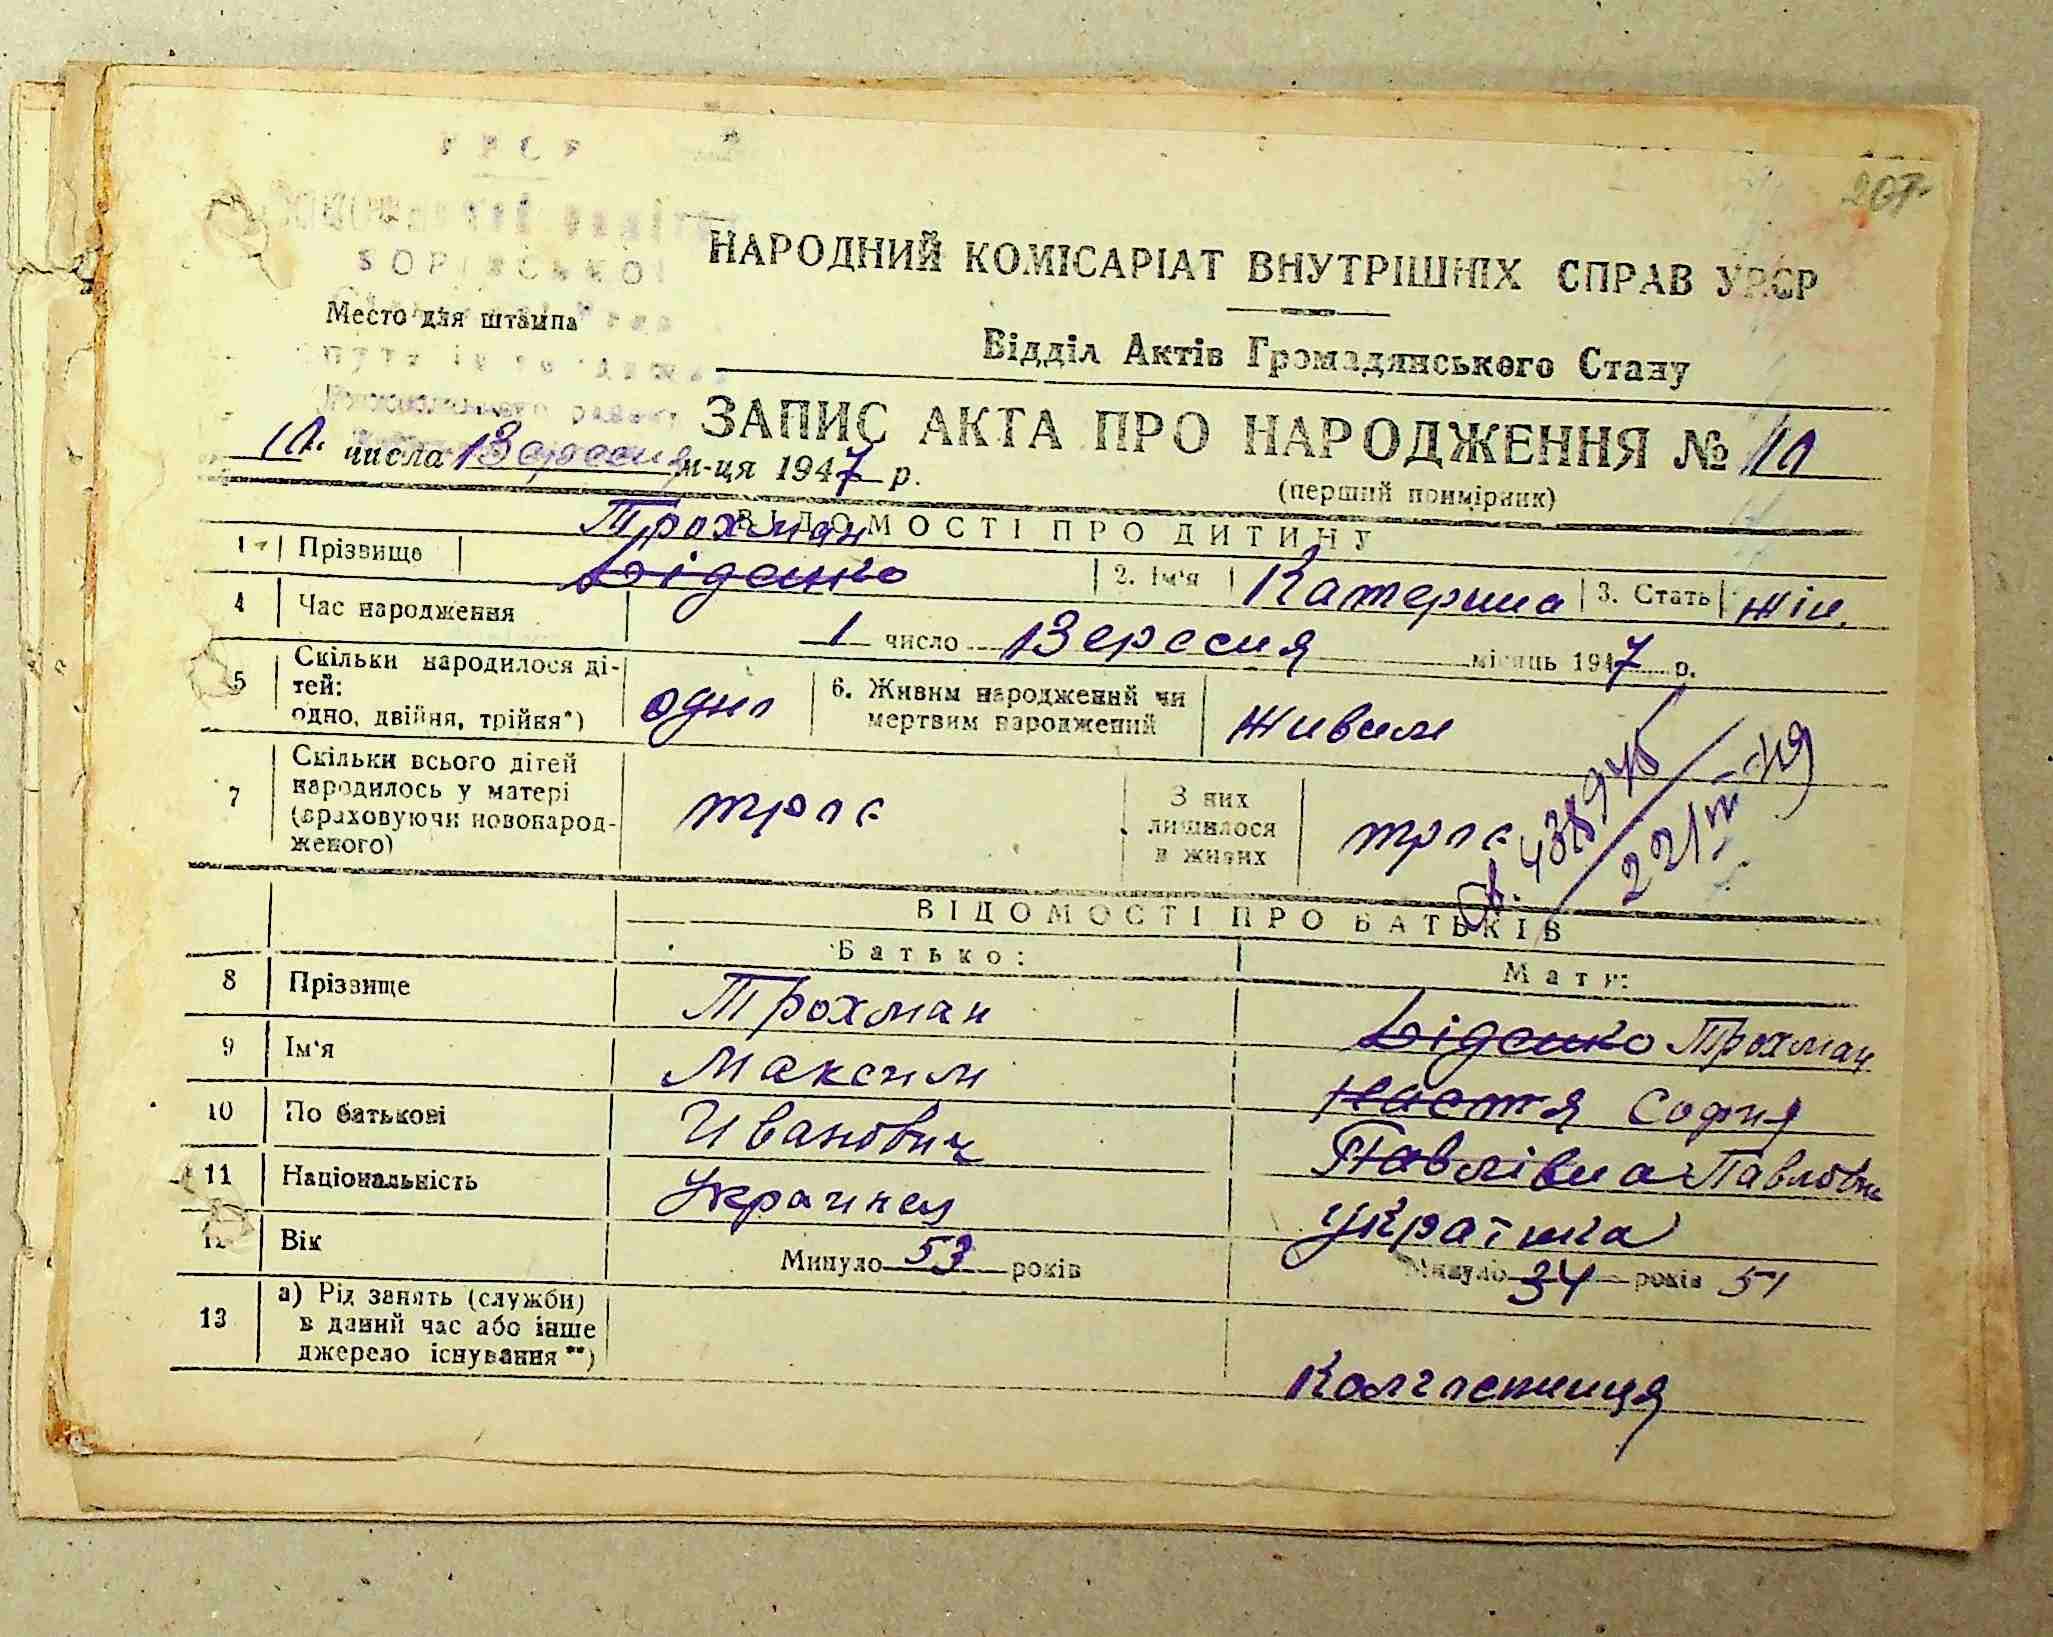 207
НАРОДНИЙ КОМІСАРІАТ ВНУТРІШНІХ СПРАВ УРСР
Место для штампа
Відділ Актів Громадянського Стану
ЗАПИС АКТА ПРО НАРОДЖЕННЯ №
числа Вересня м-ця 1947 р.
(перший примірник)
ВІДОМОСТІ ПРО ДИТИНУ
Трохман
1 Прізвище Біденко 2. Ім'я Катерина 3. Стать жін.
4 Час народження 1 число Вересня місяць 1947 р.
5 Скільки народилося ді-
тей:
одно, двійня, трійня*) одна 6. Живим народжений чи
мертвим народжений живим
7 Скільки всього дітей
народилось у матері
(враховуючи новонарод-
женого) троє З них
лишилося
в живих троє
ВІДОМОСТІ ПРО БАТЬКІВ
Батько: Мати:
8 Прізвище Трохман Біденко Трохман
9 Ім'я Максим Настя София
10 По батькові Иванович Павлівна Павловна
11 Національність Украинец Українка
12 Вік Минуло 53 років Минуло 34 років 51
13 а) Рід занять (служби)
в даний час або інше
джерело існування**) Колгоспниця